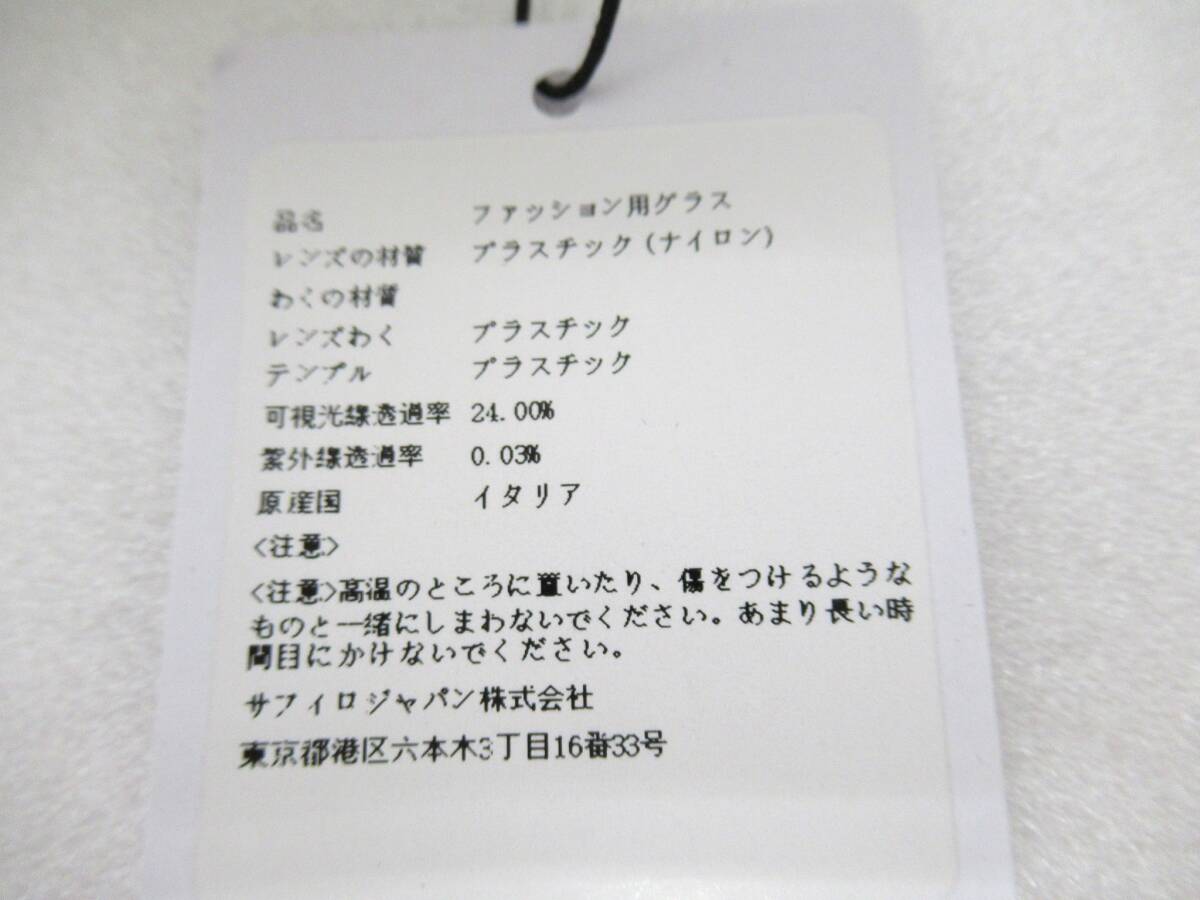 品名 ファッション用グラス
レンズの材質 プラスチック(ナイロン)
わくの材質
レンズわく プラスチック
テンプル プラスチック
可視光線透過率 24.00%
紫外線透過率 0.03%
原産国 イタリア
<注意>
<注意>高温のところに置いたり、傷をつけるような
ものと一緒にしまわないでください。あまり長い時
間目にかけないでください。
サフィロジャパン株式会社
東京都港区六本木3丁目16番33号